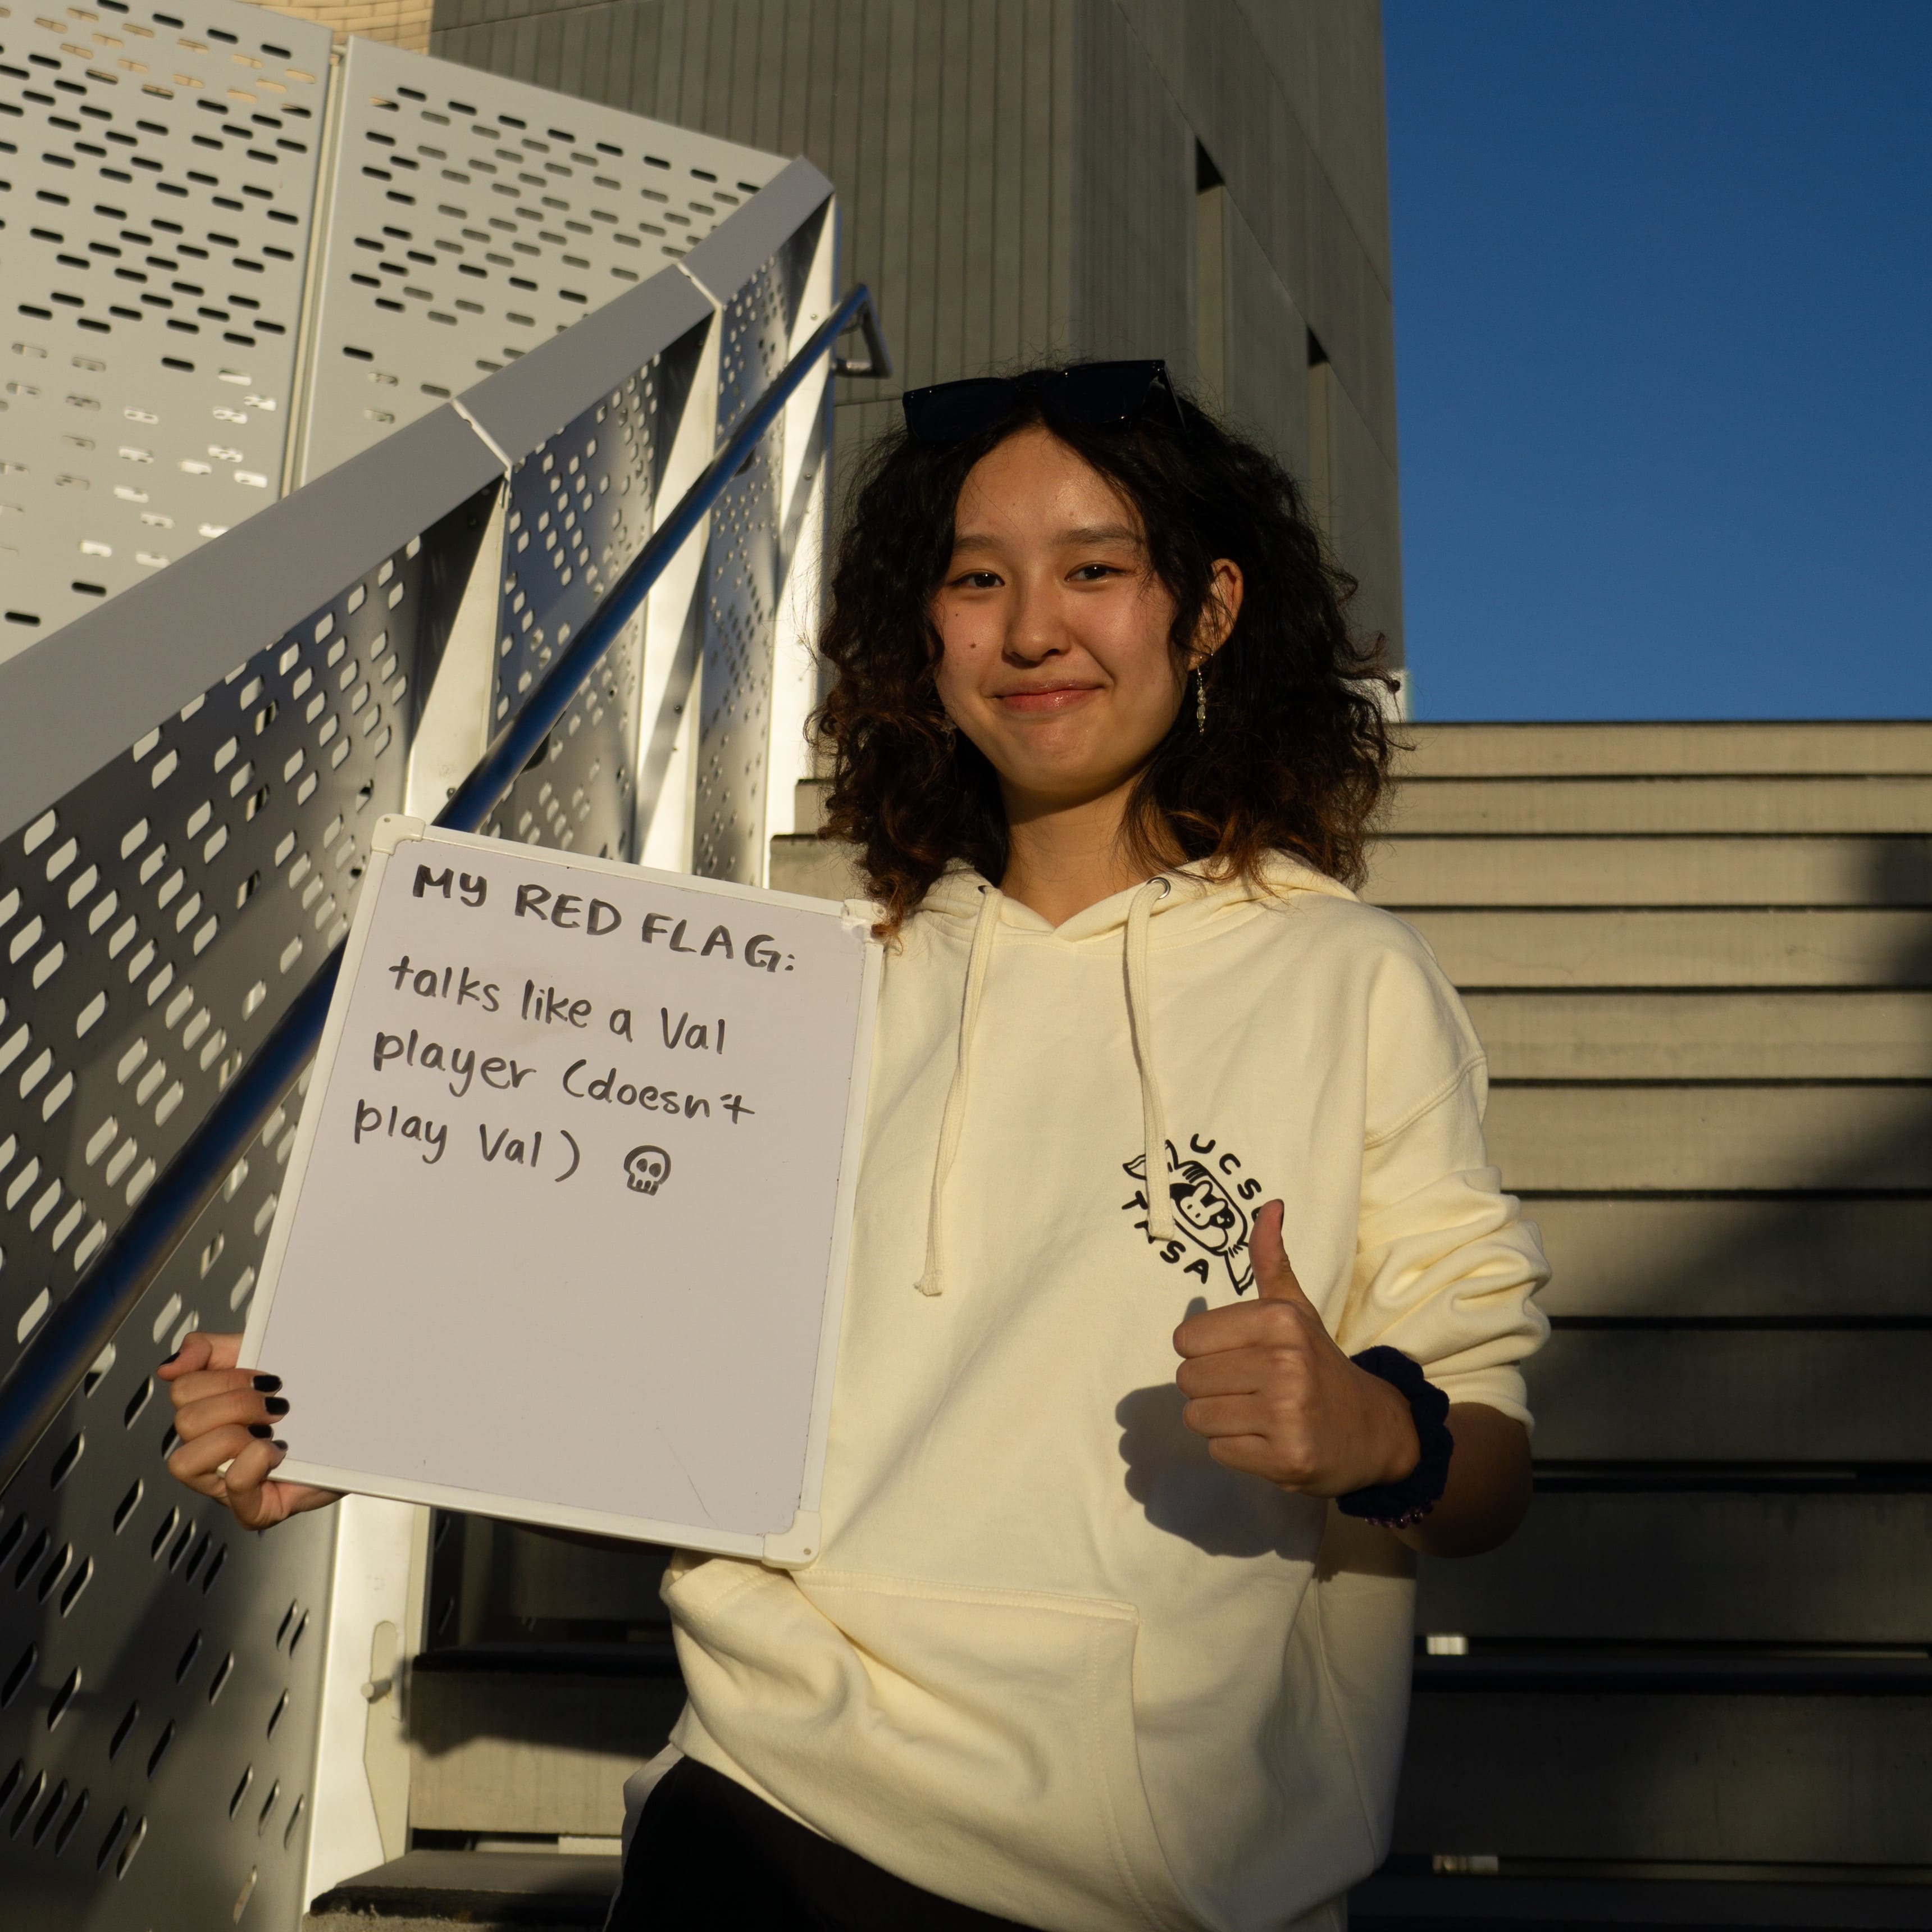 MY RED FLAG:
talks like a Val
player (doesn't
play Val)
UCS
SA